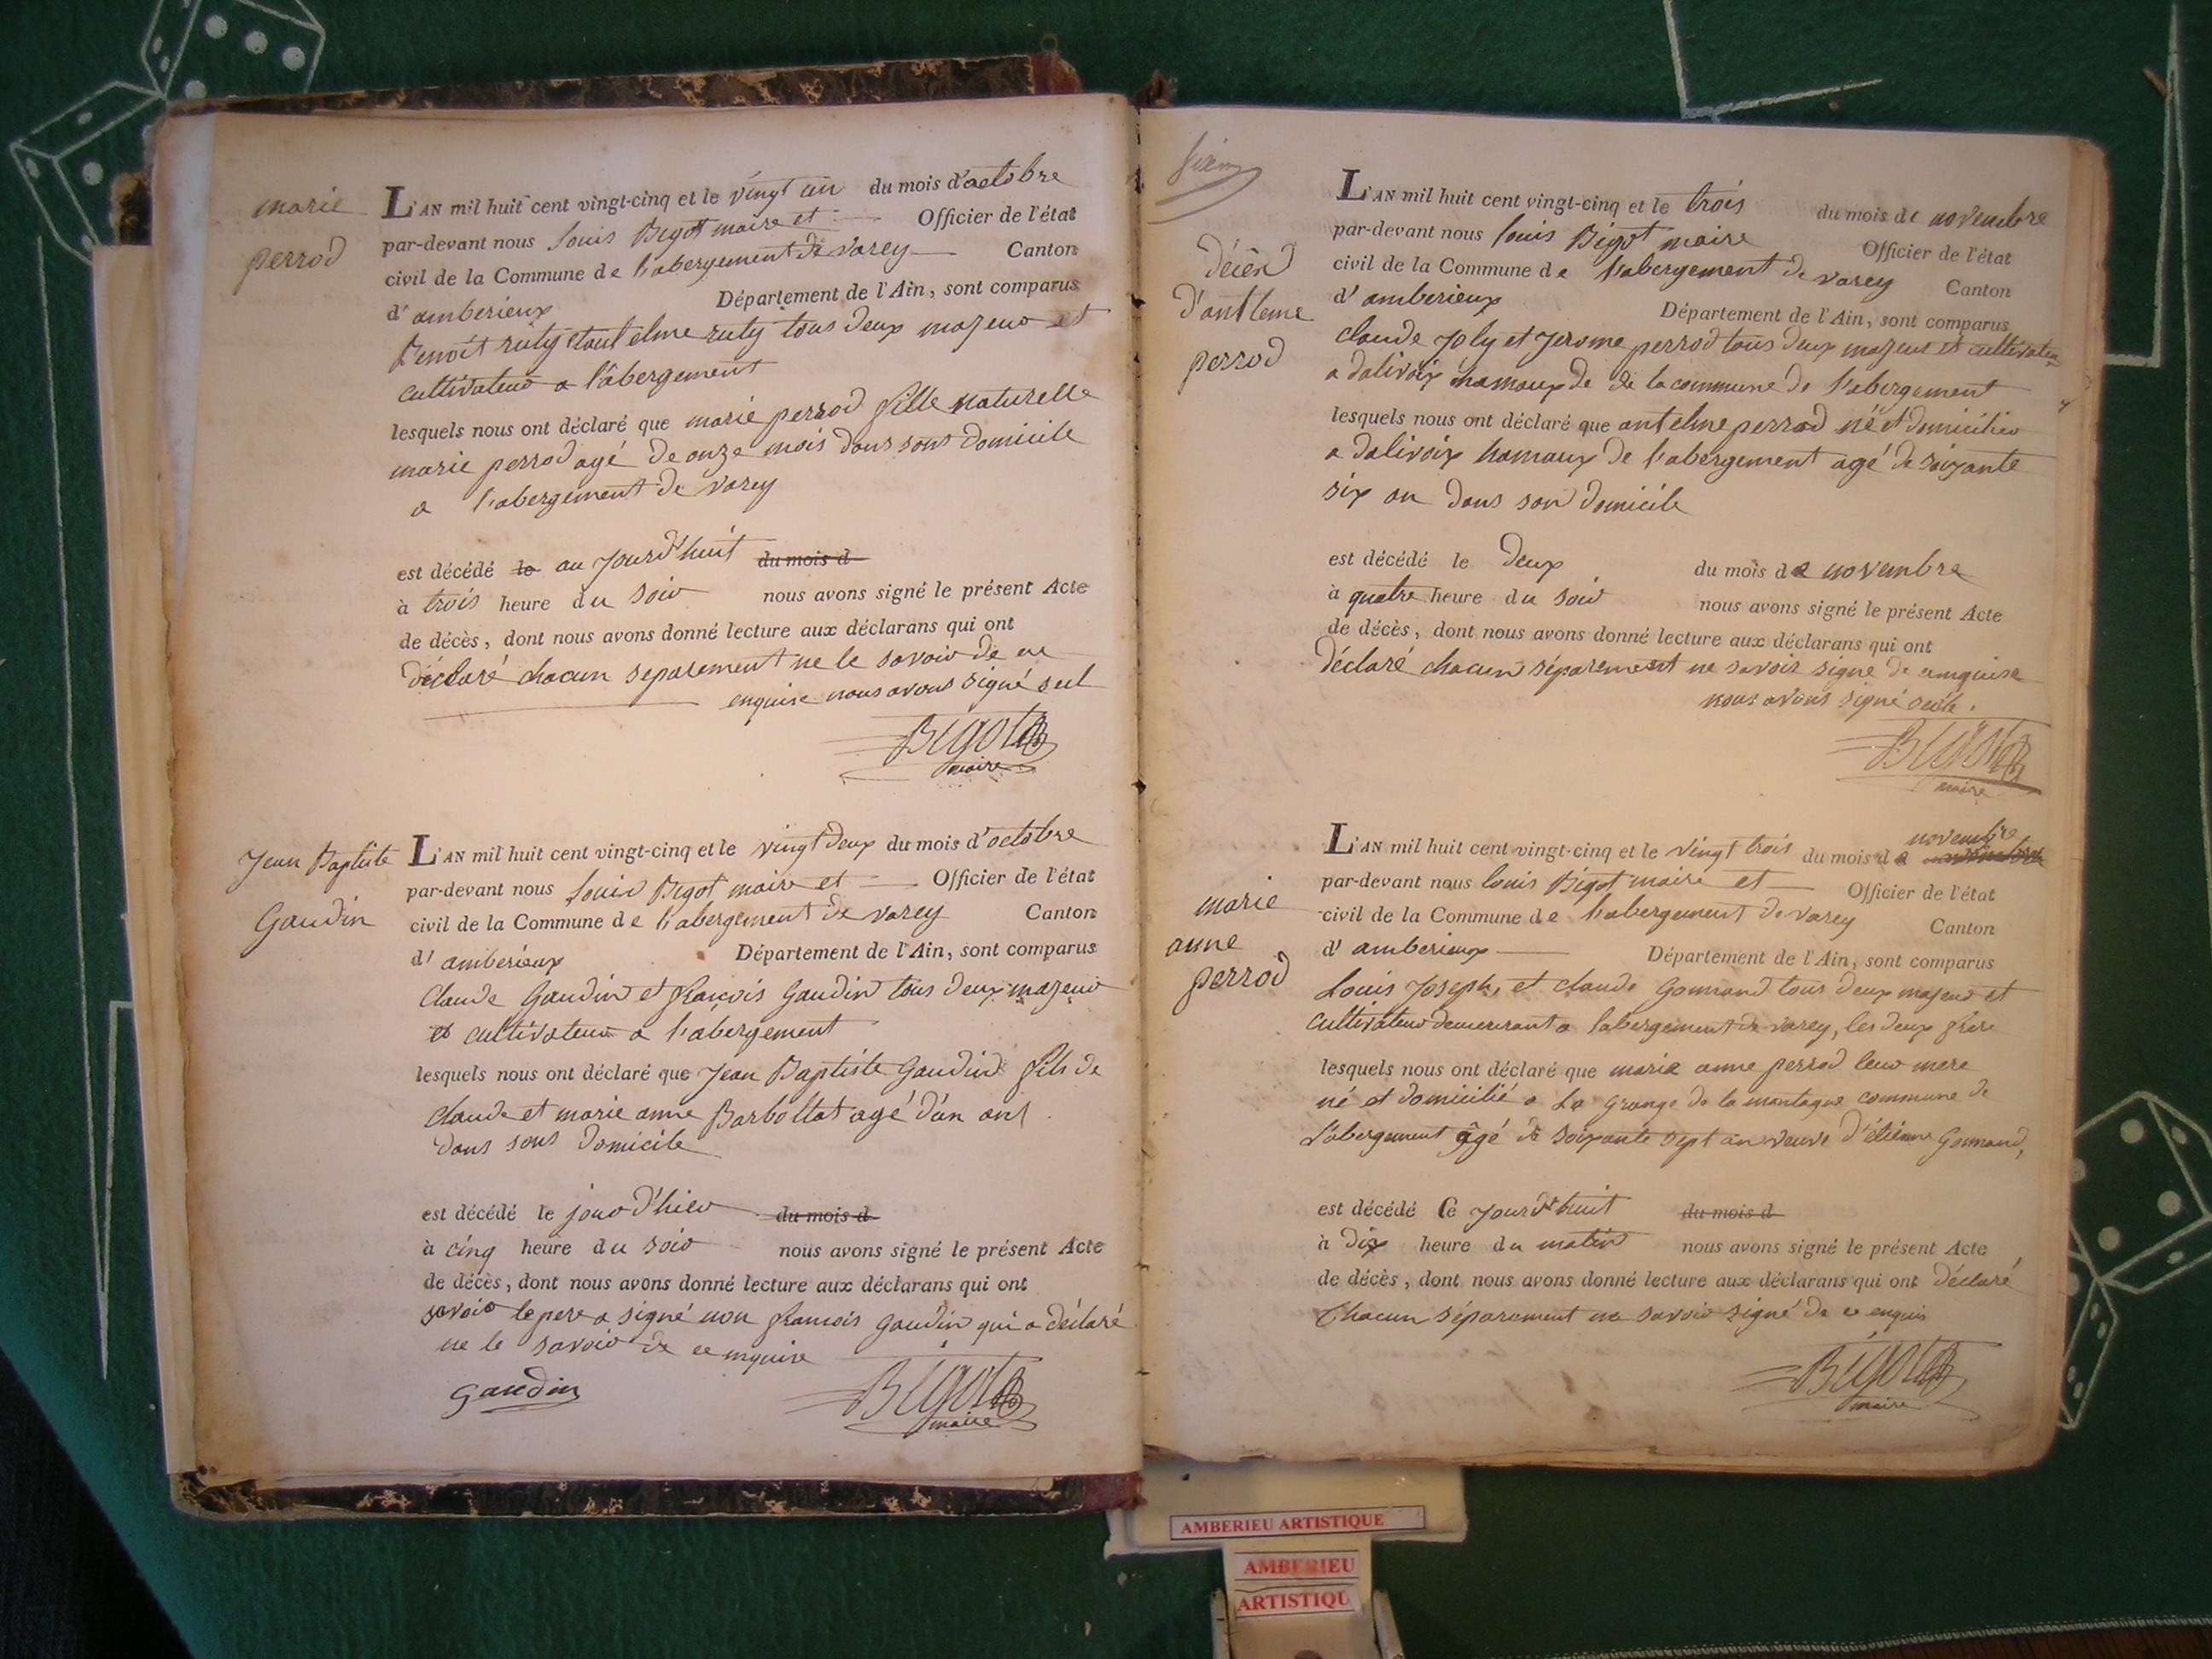 marie
perrod
L'AN mil huit cent vingt-cinq et le vingt un du mois d'octobre
par-devant nous louis Bigot maire et Officier de l'état
civil de la Commune de l'abergement de varey Canton
d'amberieux Département de l'Ain, sont comparus
Benoit ruty et antelme ruty tous deux majeur et
cultivateur a l'abergement
lesquels nous ont déclaré que marie perrod fille naturelle
marie perrod agé de onze mois dans sons domicile
a l'abergement de varey
est décédé le au jourd'huit du mois d
à trois heure du soir nous avons signé le présent Acte
de décès, dont nous avons donné lecture aux déclarans qui ont
déclaré chacun séparement ne le savoir de ce
enquise nous avons signé seul
Bigot
maire
Jean Baptiste
Gaudin
L'AN mil huit cent vingt-cinq et le vingt deux du mois d'octobre
par-devant nous Louis Bigot maire et Officier de l'état
civil de la Commune de l'abergement de varey Canton
d'amberieux Département de l'Ain, sont comparus
Claude Gaudin et françois Gaudin tous deux majeur
et cultivateur a l'abergement
lesquels nous ont déclaré que Jean Baptiste Gaudin fils de
claude et marie anne Barbollat agé d'un ant
dans sons domicile
est décédé le jour d'hier du mois d
à cinq heure du soir nous avons signé le présent Acte
de décès, dont nous avons donné lecture aux déclarans qui ont
savoir le pere a signé non francois gaudin qui a déclaré
ne le savoir de ce enquise
Gaudin
Bigot
maire
Décèd
d'antleme
perrod
L'AN mil huit cent vingt-cinq et le trois du mois de novembre
par-devant nous louis Bigot maire Officier de l'état
civil de la Commune de l'abergement de varey Canton
d'amberieux Département de l'Ain, sont comparus
claude Joly et Jerome perrod tous deux majeur et cultivateur
a dalivoix hamaux de de la commune de l'abergement
lesquels nous ont déclaré que antelme perrod né et domicilier
a dalivoix hamaux de l'abergement agé de soixante
six an dans son domicile
est décédé le deux du mois de novembre
à quatre heure du soir nous avons signé le présent Acte
de décès, dont nous avons donné lecture aux déclarans qui ont
déclaré chacun séparement ne savoir signé de enquise
nous avons signé seul.
Bigot
maire
marie
anne
perrod
novembre
L'AN mil huit cent vingt-cinq et le vingt trois du mois de
par-devant nous louis Bigot maire et Officier de l'état
civil de la Commune de l'abergement de varey Canton
d'amberieux Département de l'Ain, sont comparus
Louis Joseph, et claude Gonnand tous deux majeur et
cultivateur demeurant a l'abergement de varey, les deux frere
lesquels nous ont déclaré que marie anne perrod leur mere
né et domicilié a La Grange de la montagne commune de
L'abergement âgé de soixante sept an veuve d'étienne Gonnand,
est décédé Ce jourd'huit du mois d
à dix heure du matin nous avons signé le présent Acte
de décès, dont nous avons donné lecture aux déclarans qui ont déclaré
Chacun séparement ne savoir signé de ce enquis
Bigot
maire
AMBERIEU ARTISTIQUE
AMBERIEU
ARTISTIQU